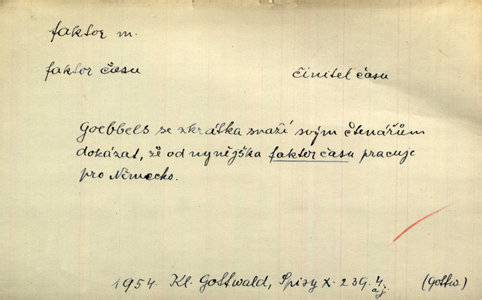 faktor m.
faktor času činitel času
Goebbels se zkrátka snaží svým čtenářům
dokázat, že od nynějška faktor času pracuje
pro Německo.
1954. Kl. Gottwald, Spisy X. 239. 4. (Gottw.)
aj.